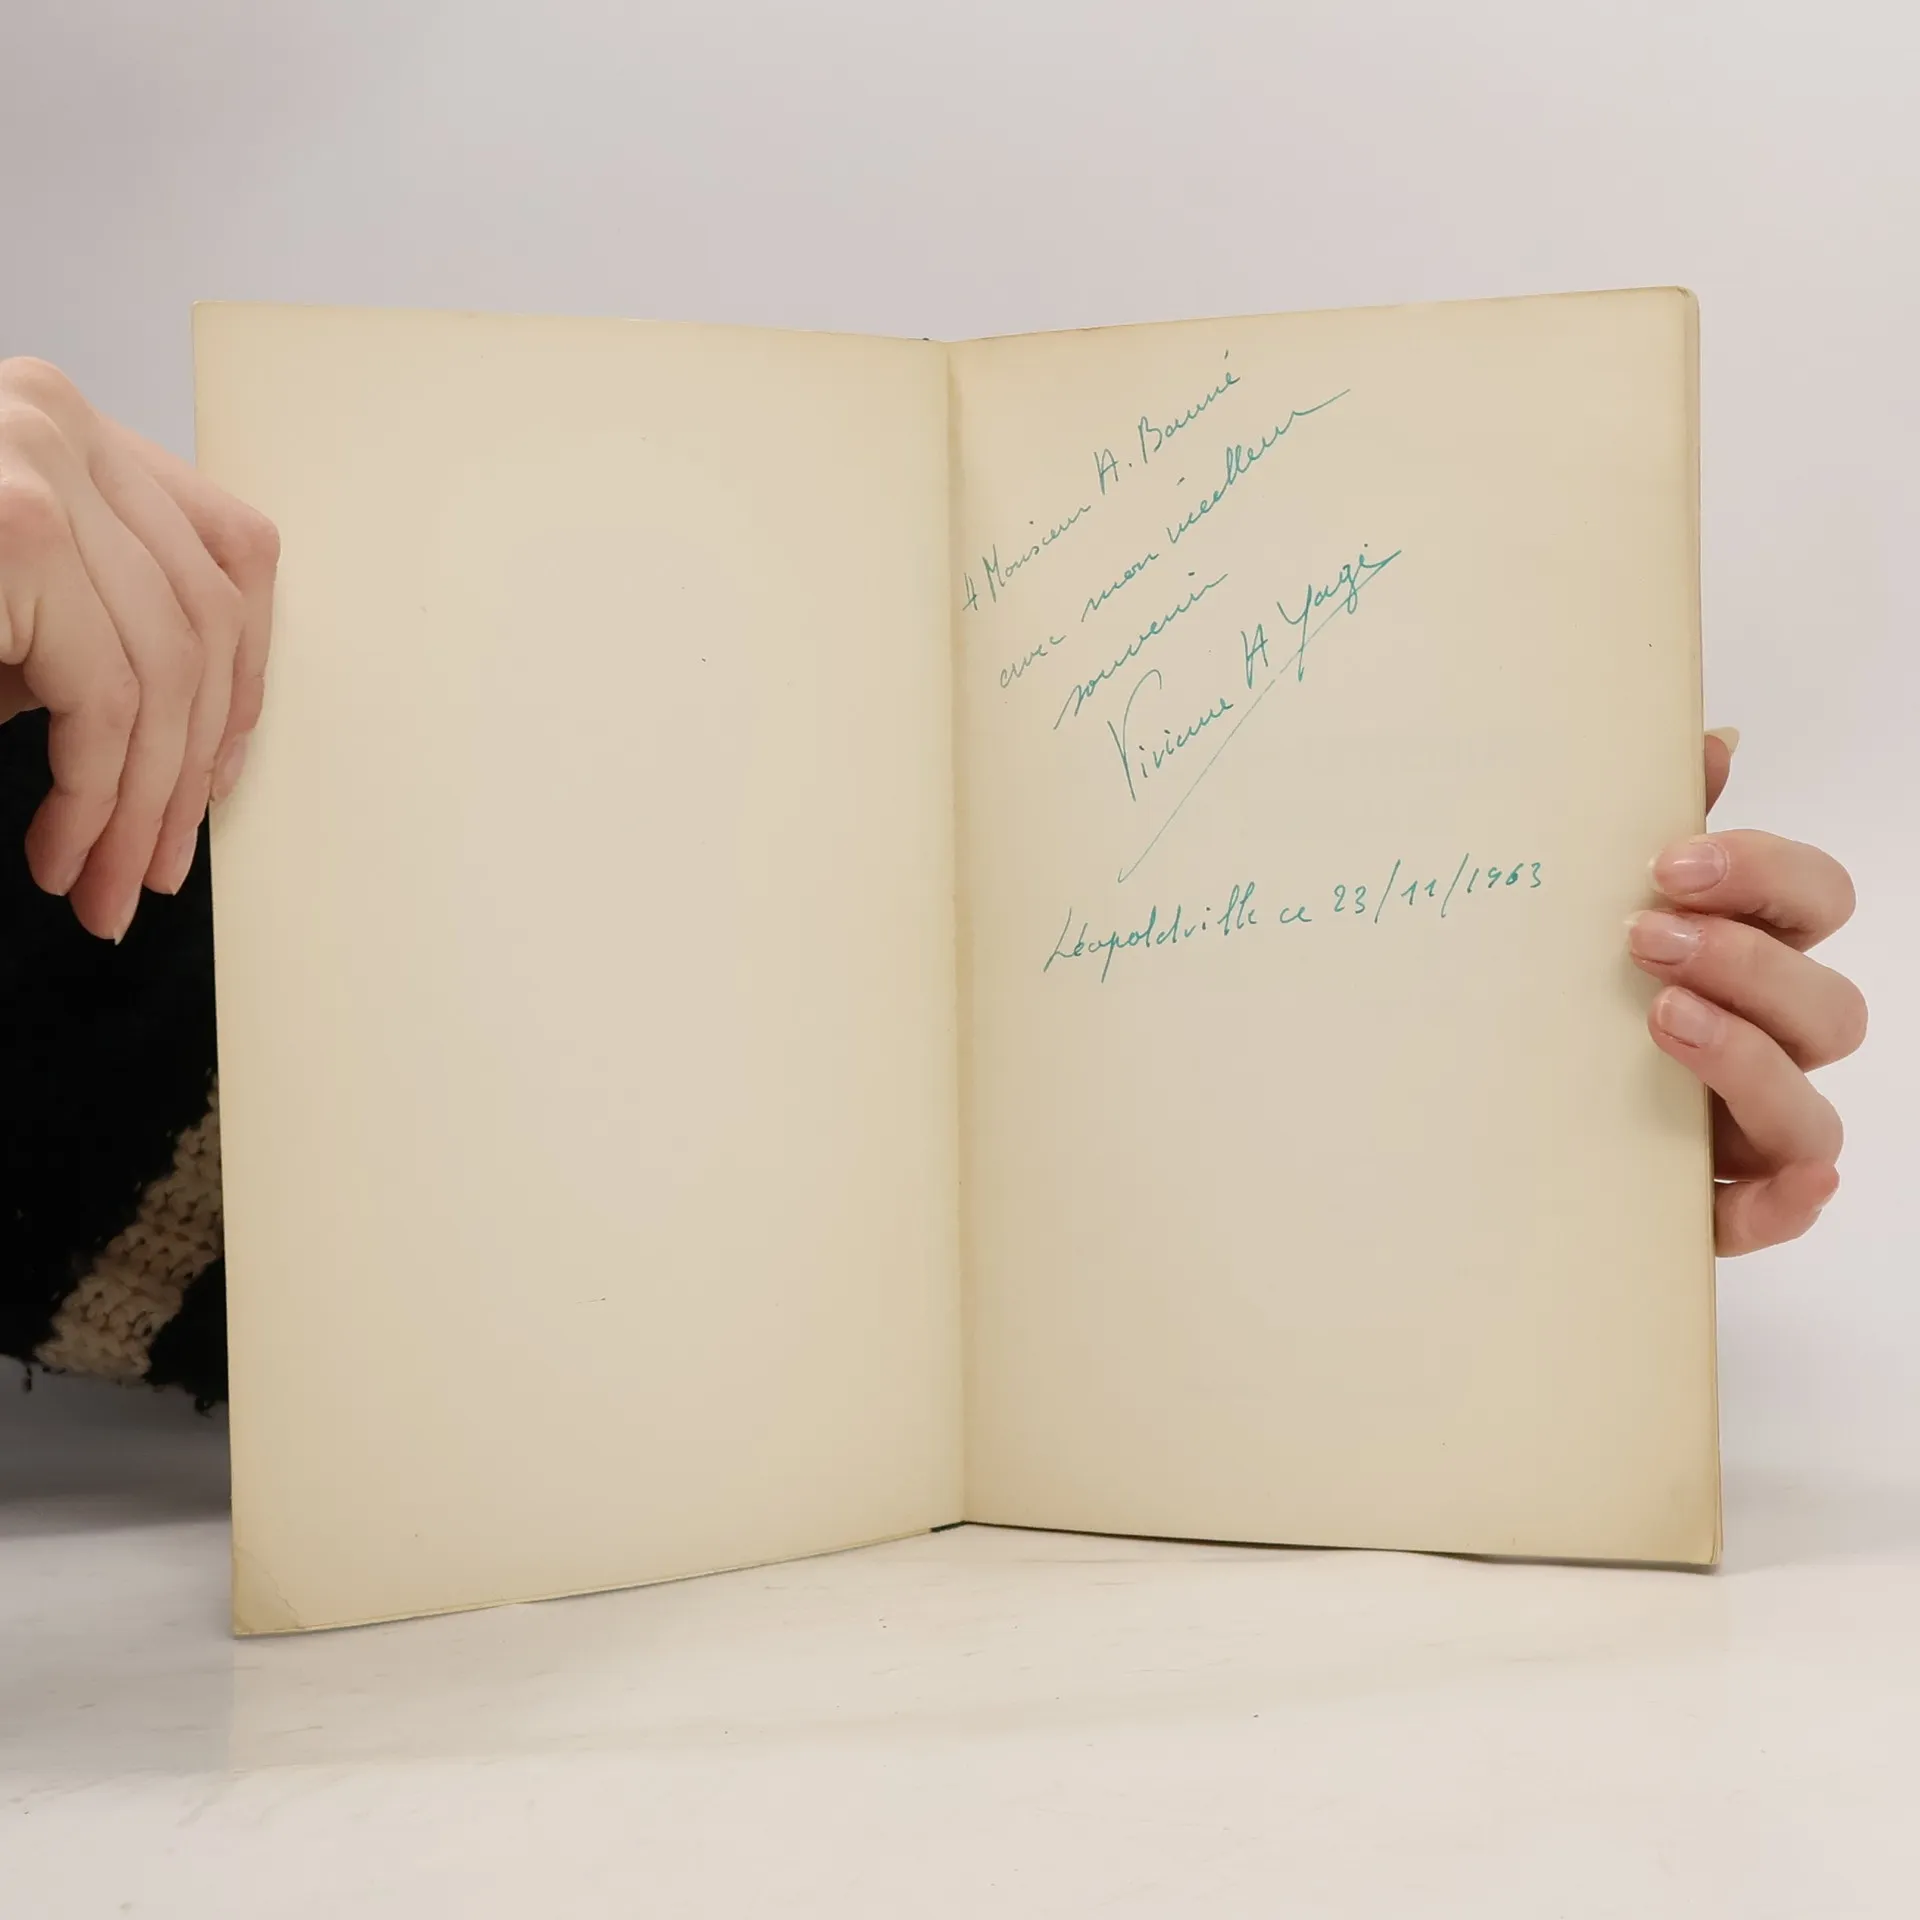 A Monsieur A. Bournié
avec mon meilleur
souvenir
Viviane A Yagi
Léopoldville ce 23/11/1963